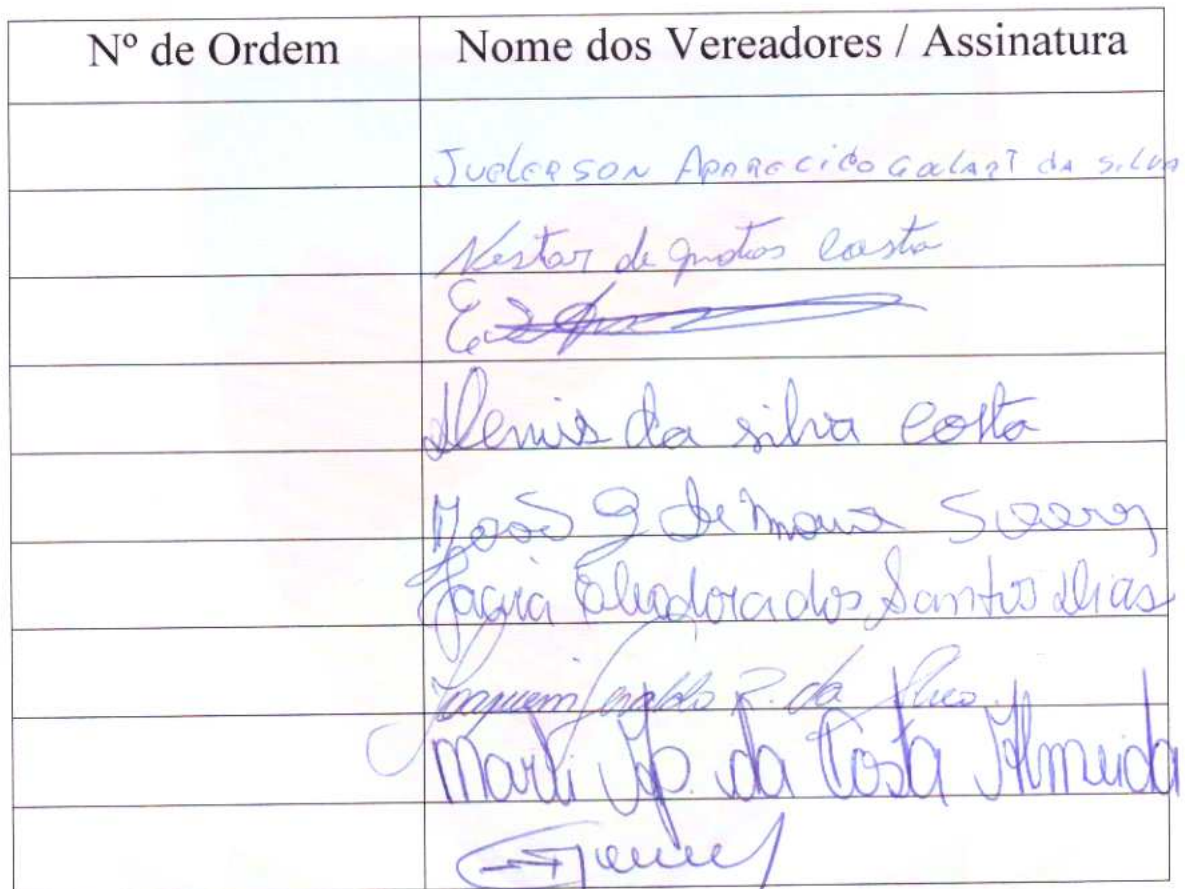 Nº de Ordem
Nome dos Vereadores / Assinatura
Juderson Aparecido Galazi da Silva
Nestor de Matos Costa
Denis da silva Costa
João G de Moura Soares
Jacira dos Santos Dias
Joaquim Geraldo R. da Silva
Marli Ap. da Costa Almeida